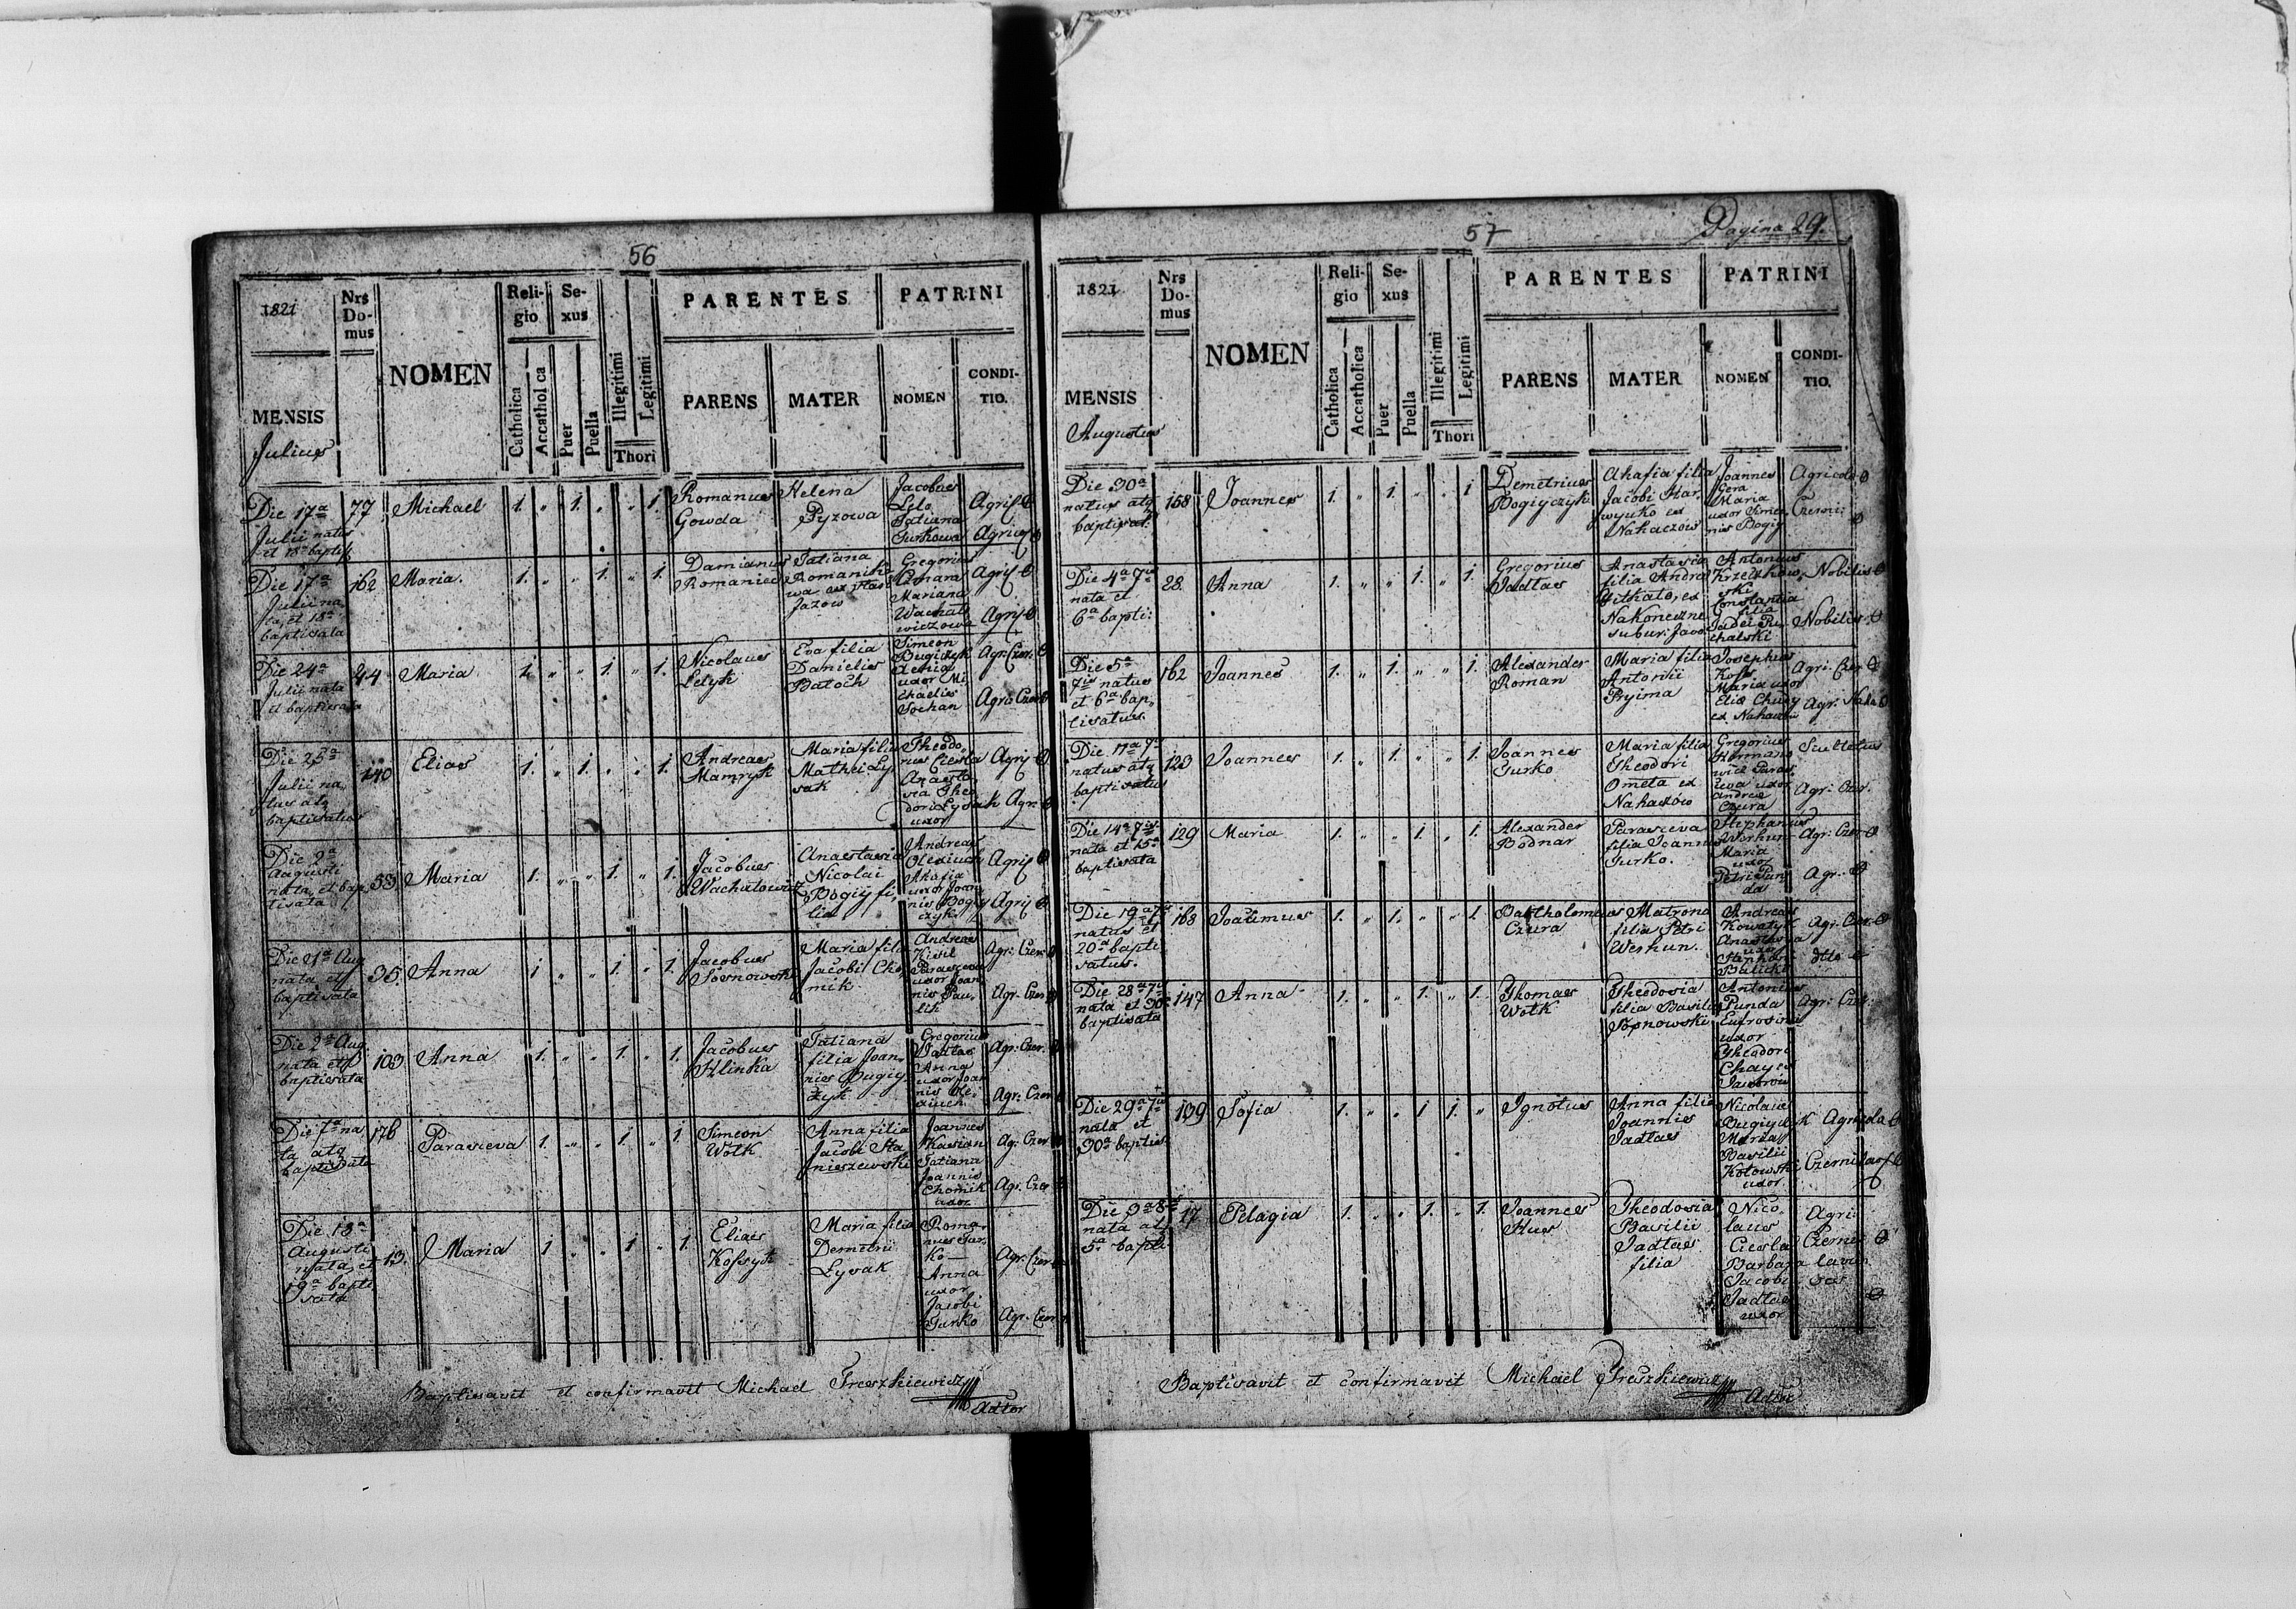 56
1821
Nrs Domus
NOMEN
Religio
Sexus
PARENTES
PATRINI
MENSIS
Julius
Catholica
Accatholica
Puer
Puella
Illegitimi
Legitimi
Thori
PARENS
MATER
NOMEN
CONDITIO.
Die 17a Julii natus et 18a baptis
77
Michael
1. " 1. " " 1.
Romanus Gowda
Helena Pyzowa
Jacobus Lelo
Tatiana Jurkowa
Agris
Agric
Die 17a Julii nata, et 18a baptisata
162
Maria.
1. " " 1. " 1.
Damianus Romaniec
Tatiana
Gregorius
Mariana
Agris
Agris
Die 24a Julii nata et baptisata
44
Maria
1. " " 1. " 1.
Nicolaus Lelyk
Eva filia Danielis Batoch
Simeon Bugiczyk
uxor Michaelis Sochan
Agr. Czer.
Agr. Czer
Die 25a Julii natus atq baptisatus
140
Elias
1. " 1. " " 1.
Andreas Mamryk
Maria filia Mathei Lysak
Theodorus Ciesla
Anastasia Theodori Lysak uxor
Agris
Agr.
Die 2a Augusti nata, et baptisata
55.
Maria
1. " " 1. " 1.
Jacobus Wachulowicz
Anastasia Nicolai Bogiy filia
Andreas Olexiuch
Ahafia uxor Joannis Bogiyczyk
Agris
Agris
Die 21a Aug nata, et baptisata
36.
Anna
1 " " 1. " 1.
Jacobus Sosnowski
Maria filia Jacobi Chomik
Andreas Kisil
Parasceva uxor Joannis Pawlik
Agr. Czer.
Agr. Czer
Die 2a Aug nata et baptisata
103
Anna
1. " " 1. " 1.
Jacobus Hlinka
Tatiana filia Joannis Bugiyczyk
Gregorius Jadlas
Anna uxor Joannis Olexiuch
Agr: Czer.
Agr: Czer
Die 7a nata atq baptisata
176
Parasceva
1. " " 1. " 1
Simeon Wolk
Anna filia Jacobi Staniszewski
Joannes Kasian
Tatiana Joannis Chomik uxor
Agr. Czer
Agr. Czer
Die 18a Augusti nata, et 19a baptisata
13.
Maria
1 " " 1 " 1.
Elias Kossyk
Maria filia Demetrii Lysak
Romanus Jurko
Anna uxor Jacobi Jurko
Agr. Czer
Agr. Czer
Baptisavit et confirmavit Michael Treszkiewicz
Adtor
57
Pagina 29.
1821
Nrs Domus
NOMEN
Religio
Sexus
PARENTES
PATRINI
MENSIS
Augustus
Catholica
Accatholica
Puer
Puella
Illegitimi
Legitimi
Thori
PARENS
MATER
NOMEN
CONDITIO.
Die 30a natus atq baptisat.
158
Joannes
1. " 1. " " 1
Demetrius Bogiyczyk
Ahafia filia Jacobi Harwyuko ex Nahaczow
Joannes Gera
Maria uxor Simeonis Bogiy
Agricola
Czerni:
Die 4a 7bris nata et 6a bapti:
28.
Anna
1. " " 1. " 1.
Gregorius Jadlas
Anastasia filia Andrea Hitkalo, ex Nakoneczne subur: Javo
Antonius Krzeczkowski
Constantia filia Puchalski
Nobilis
Nobilis
Die 5a 7bris natus et 6a baptisatus.
162
Joannes
1. " 1. " " 1.
Alexander Roman
Maria filia Antonii Pryima
Josephus Kos
Maria uxor Eliæ Chuiy ex Nahaczow
Agri. Czer
Agr. Naha
Die 11a 7bris natus atq baptisatus
123
Joannes
1. " 1. " " 1.
Joannes Jurko
Maria filia Theodori Ometa ex Nahaczow
Gregorius Hormanowicz
Parasceva uxor Andreæ Czura
Scultetus
Agr: Czer.
Die 14a 7bris nata et 15a baptisata
129
Maria
1. " " 1. " 1.
Alexander Bodnar
Parasceva filia Joannis Jurko.
Stephanus Werhun
Maria uxor Petri Punda
Agr: Czer
Agr.
Die 19a 7bris natus et 20a baptisatus.
168
Joakimus
1. " 1. " " 1.
Bartholomeus Czura
Matrona filia Petri Werhun.
Andreas Kowalyk
Anastasia uxor Stephani Balicki
Agr. Czer.
dtto
Die 28a 7bris nata et 30a baptisata
147
Anna
1. " " 1. " 1.
Thomas Wolk
Theodosia filia Basilii Sosnowski
Antonius Punda
Eufrosina uxor Theodori
Agr: Czer:
Die 29a 7bris nata et 30a baptis:
139
Sofia
1. " " 1 1. "
Ignotus
Anna filia Joannis Jadlas
Nicolaus Bugiyczyk
Maria Basilii Kotowski uxor.
Die 3a 8bris nata atq 5a bapti:
17
Pelagia
1. " " 1. " 1.
Joannes Hus
Theodosia Basilii Jadlas filia
Nicolaus Ciesla
Barbara Jacobi Jadlas uxor
Agri:
Baptisavit et confirmavit Michael Treszkiewicz
Adtor